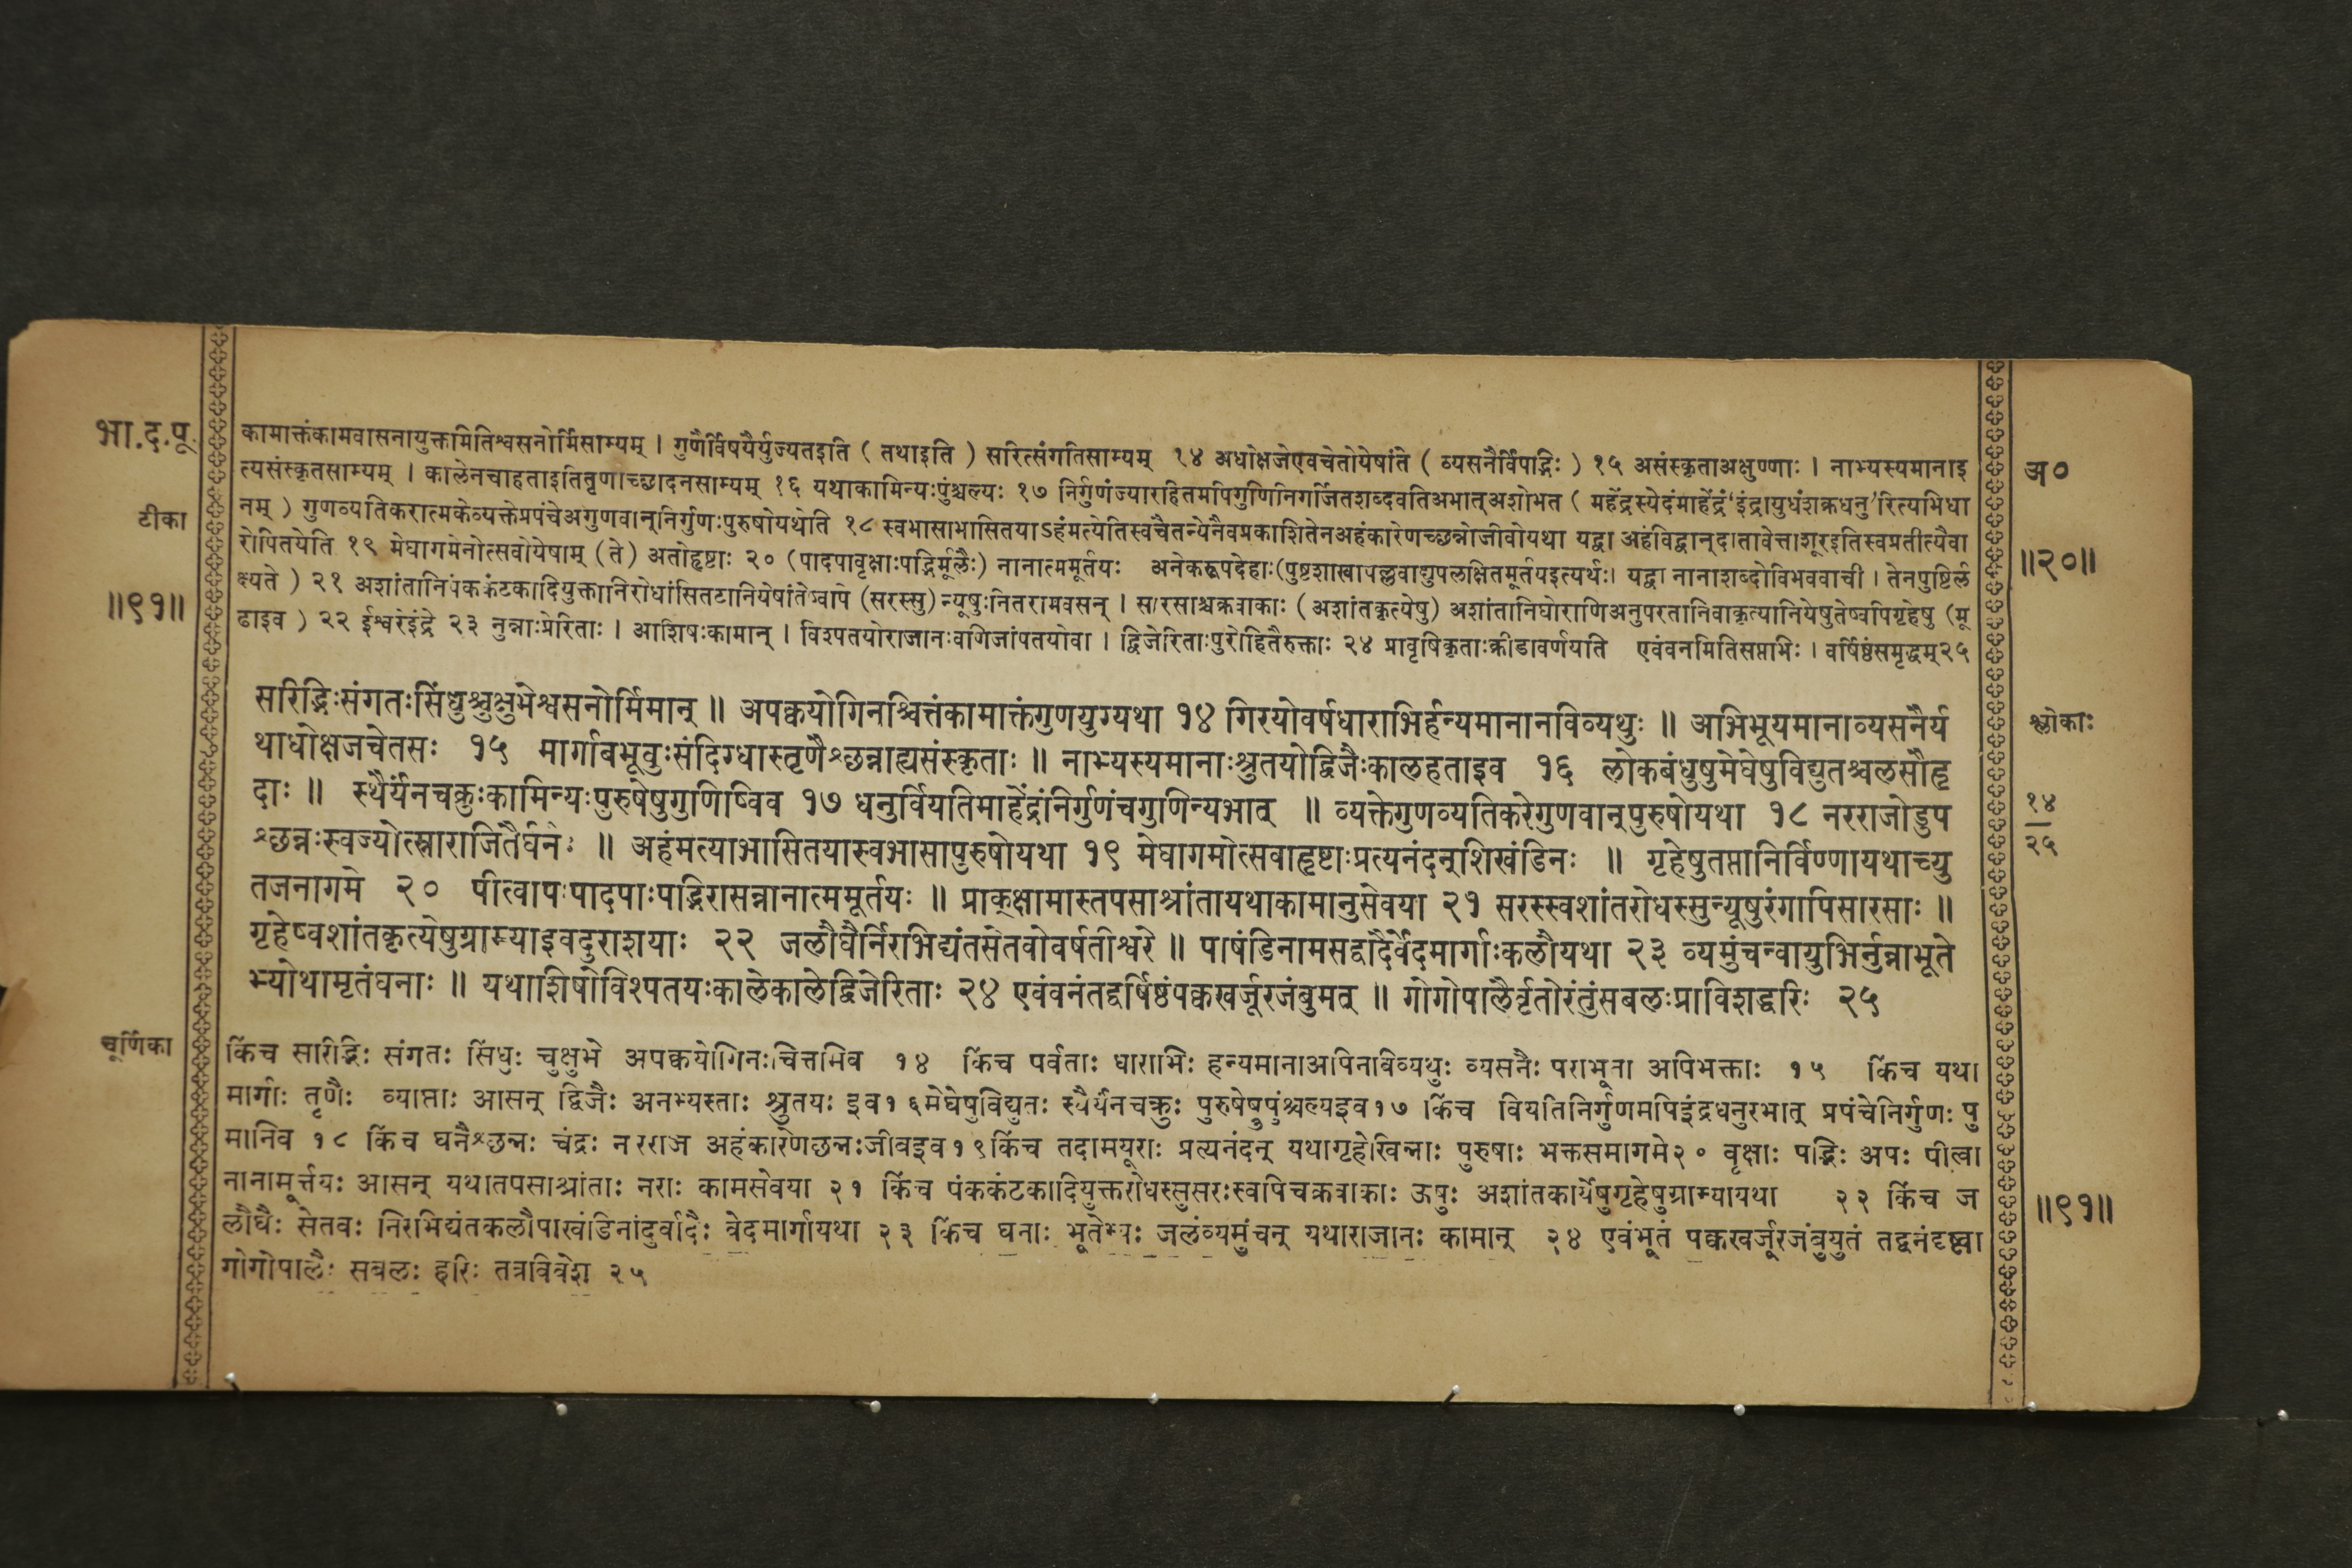 भा.द.पू.
टीका
॥९१॥
कामाक्तंकामवासनायुक्तमितिश्वसनोर्मिसाम्यम् । गुणैर्विषयैर्युज्यतइति ( तथाइति ) सरित्संगतिसाम्यम् १४ अधोक्षजेएवचेतोयेषांते ( व्यसनैर्विपद्भिः ) १५ असंस्कृताअक्षुण्णाः । नाभ्यस्यमानाइ
त्यसंस्कृतसाम्यम् । कालेनचाहताइतितृणाच्छादनसाम्यम् १६ यथाकामिन्यःपुंश्चल्यः १७ निर्गुणंज्यारहितमपिगुणिनिगर्जितशब्दवतिअभात्अशोभत ( महेंद्रस्येदंमाहेंद्रं‘इंद्रायुधंशक्रधनु’रित्यभिधा
नम् ) गुणव्यतिकरात्मकेव्यक्तेप्रपंचेअगुणवान्निर्गुणःपुरुषोयथेति १८ स्वभासाभासितयाऽहंमत्येतिस्वचैतन्येनैवप्रकाशितेनअहंकारेणच्छन्नोजीवोयथा यद्वा अहंविद्वान्दातावेत्ताशूरइतिस्वप्रतीत्यैवा
रोपितयेति १९ मेघागमेनोत्सवोयेषाम् (ते) अतोहृष्टाः २० (पादपावृक्षाःपद्भिर्मूलैः) नानात्ममूर्तयः अनेकरूपदेहाः(पुष्टशाखापल्लवाद्युपलक्षितमूर्तयइत्यर्थः। यद्वा नानाशब्दोविभववाची । तेनपुष्टिर्ल
क्ष्यते ) २१ अशांतानिपंककंटकादियुक्तानिरोधांसितटानियेषांतेष्वपि (सरस्सु) न्यूषुःनितरामवसन् । सारसाश्चक्रवाकाः (अशांतकृत्येषु) अशांतानिघोराणिअनुपरतानिवाकृत्यानियेषुतेष्वपिगृहेषु (मू
ढाइव ) २२ ईश्वरेइंद्रे २३ नुन्नाःप्रेरिताः । आशिषःकामान् । विश्पतयोराजानःवणिजांपतयोवा । द्विजेरिताःपुरोहितैरुक्ताः २४ प्रावृषिकृताःक्रीडावर्णयति एवंवनमितिसप्तभिः । वर्षिष्ठंसमृद्धम्२५
अ०
॥२०॥
सरिद्भिःसंगतःसिंधुश्चुक्षुभेश्वसनोर्मिमान् ॥ अपक्वयोगिनश्चित्तंकामाक्तंगुणयुग्यथा १४ गिरयोवर्षधाराभिर्हन्यमानानविव्यथुः ॥ अभिभूयमानाव्यसनैर्य
थाधोक्षजचेतसः १५ मार्गाबभूवुःसंदिग्धास्तृणैश्छन्नाह्यसंस्कृताः ॥ नाभ्यस्यमानाःश्रुतयोद्विजैःकालहताइव १६ लोकबंधुषुमेघेषुविद्युतश्चलसौहृ
दाः ॥ स्थैर्यंनचक्रुःकामिन्यःपुरुषेषुगुणिष्विव १७ धनुर्वियतिमाहेंद्रंनिर्गुणंचगुणिन्यभात् ॥ व्यक्तेगुणव्यतिकरेगुणवान्पुरुषोयथा १८ नरराजोडुप
श्छन्नःस्वज्योत्स्नाराजितैर्घनैः ॥ अहंमत्याभासितयास्वभासापुरुषोयथा १९ मेघागमोत्सवाहृष्टाःप्रत्यनंदन्शिखंडिनः ॥ गृहेषुतप्तानिर्विण्णायथाच्यु
तजनागमे २० पीत्वापःपादपाःपद्भिरासन्नानात्ममूर्तयः ॥ प्राक्क्षामास्तपसाश्रांतायथाकामानुसेवया २१ सरस्स्वशांतरोधस्सुन्यूषुरंगापिसारसाः ॥
गृहेष्वशांतकृत्येषुग्राम्याइवदुराशयाः २२ जलौघैर्निरभिद्यंतसेतवोवर्षतीश्वरे ॥ पाषंडिनामसद्वादैर्वेदमार्गाःकलौयथा २३ व्यमुंचन्वायुभिर्नुन्नाभूते
भ्योथामृतंघनाः ॥ यथाशिषोविश्पतयःकालेकालेद्विजेरिताः २४ एवंवनंतद्वर्षिष्ठंपक्वखर्जूरजंबुमत् ॥ गोगोपालैर्वृतोरंतुंसबलःप्राविशद्धरिः २५
श्लोकाः
१४
२५
चूर्णिका
किंच सरिद्भिः संगतः सिंधुः चुक्षुभे अपक्वयोगिनःचित्तमिव १४ किंच पर्वताः धाराभिः हन्यमानाअपिनविव्यथुः व्यसनैः पराभूता अपिभक्ताः १५ किंच यथा
मार्गाः तृणैः व्याप्ताः आसन् द्विजैः अनभ्यस्ताः श्रुतयः इव१६मेघेषुविद्युतः स्थैर्यंनचक्रुः पुरुषेषुपुंश्चल्यइव१७ किंच वियतिनिर्गुणमपिइंद्रधनुरभात् प्रपंचेनिर्गुणः पु
मानिव १८ किंच घनैश्छन्नः चंद्रः नरराज अहंकारेणछन्नःजीवइव१९किंच तदामयूराः प्रत्यनंदन् यथागृहेखिन्नाः पुरुषाः भक्तसमागमे२० वृक्षाः पद्भिः अपः पीत्वा
नानामूर्त्तयः आसन् यथातपसाश्रांताः नराः कामसेवया २१ किंच पंककंटकादियुक्तरोधस्सुसरःस्वपिचक्रवाकाः ऊषुः अशांतकार्येषुगृहेषुग्राम्यायथा २२ किंच ज
लौघैः सेतवः निरभिद्यंतकलौपाखंडिनांदुर्वादैः वेदमार्गायथा २३ किंच घनाः भूतेभ्यः जलंव्यमुंचन् यथाराजानः कामान् २४ एवंभूतं पक्वखर्जूरजंबुयुतं तद्वनंदृष्ट्वा
गोगोपालैः सबलः हरिः तत्रविवेश २५
॥९१॥